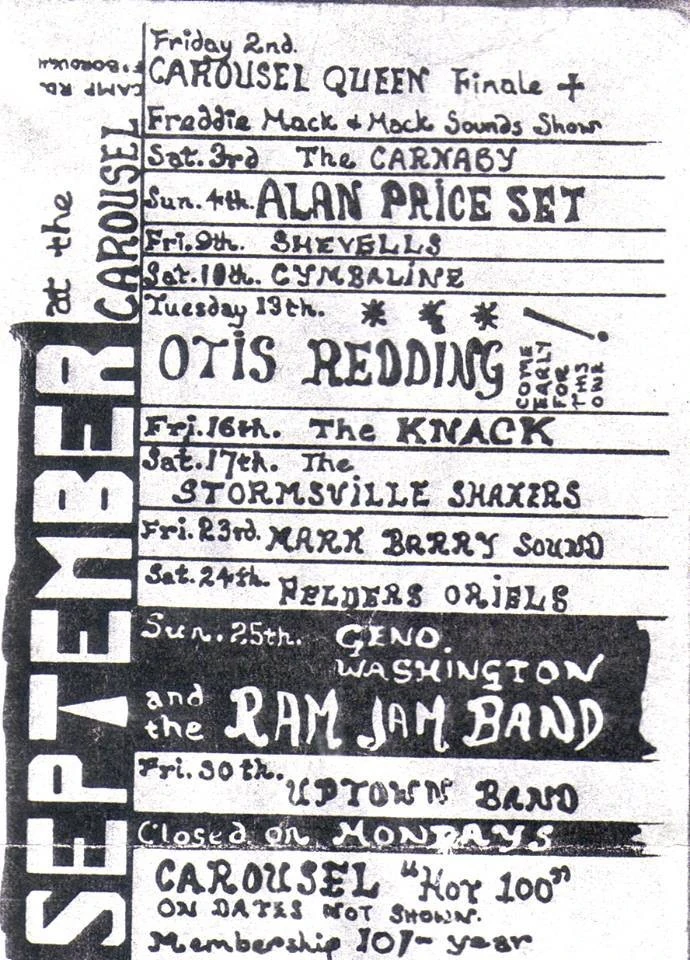 SEPTEMBER
at the
CAROUSEL
CAMP RD.
F'BOROUGH
Friday 2nd.
CAROUSEL QUEEN Finale +
Freddie Mack & Mack Sounds Show
Sat. 3rd The CARNABY
Sun. 4th. ALAN PRICE SET
Fri. 9th. SHEVELLS
Sat. 10th. CYMBALINE
Tuesday 13th. * * *
OTIS REDDING!
COME
EARLY
FOR
THIS
ONE
Fri. 16th. The KNACK
Sat. 17th. The
STORMSVILLE SHAKERS
Fri. 23rd. MARK BARRY SOUND
Sat. 24th. FELDERS ORIELS
Sun. 25th. GENO.
WASHINGTON
and
the RAM JAM BAND
Fri. 30th.
UPTOWN BAND
Closed on MONDAYS
CAROUSEL "HOT 100"
ON DATES NOT SHOWN.
Membership 10/- year